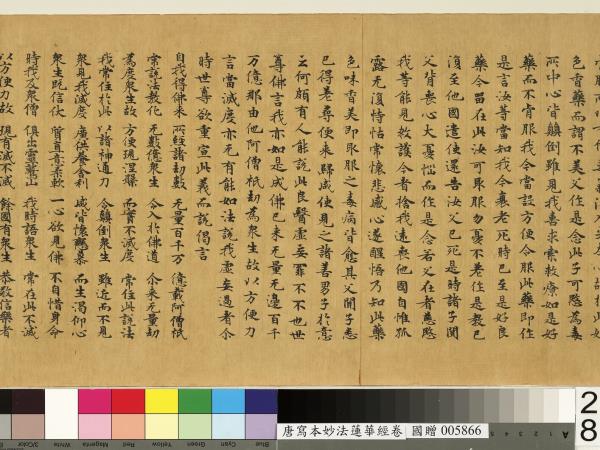 色香藥而謂不美父作是念此子可愍為毒
所中心皆顛倒雖見我喜求索救療如是好
藥而不肯服我今當設方便令服此藥即作
是言汝等當知我今衰老死時已至是好良
藥今留在此汝可取服勿憂不差作是教已
復至他國遣使還告汝父已死是時諸子聞
父背喪心大憂惱而作是念若父在者慈愍
我等能見救護今者捨我遠喪他國自惟孤
露无復恃怙常懷悲感心遂醒悟乃知此藥
色味香美即取服之毒病皆愈其父聞子悉
已得差尋便來歸咸使見之諸善男子於意
云何頗有人能說此良醫虛妄罪不不也世
尊佛言我亦如是成佛已來无量无邊百千
万億那由他阿僧祇劫為衆生故以方便力
言當滅度亦无有能如法說我虛妄過者尒
時世尊欲重宣此義而說偈言
自我得佛來 所經諸劫數 无量百千万 億載阿僧祇
常說法教化 无數億衆生 令入於佛道 尒來无量劫
為度衆生故 方便現涅槃 而實不滅度 常住此說法
我常住於此 以諸神通力 令顛倒衆生 雖近而不見
衆見我滅度 廣供養舍利 咸皆懷戀慕 而生渴仰心
衆生既信伏 質直意柔軟 一心欲見佛 不自惜身命
時我及衆僧 俱出靈鷲山 我時語衆生 常在此不滅
以方便力故 現有滅不滅 餘國有衆生 恭敬信樂者
唐寫本妙法蓮華經卷 國贈 005866
3/Color
White
Magenta
Red
Yellow
Green
Cyan
Blue
A
28